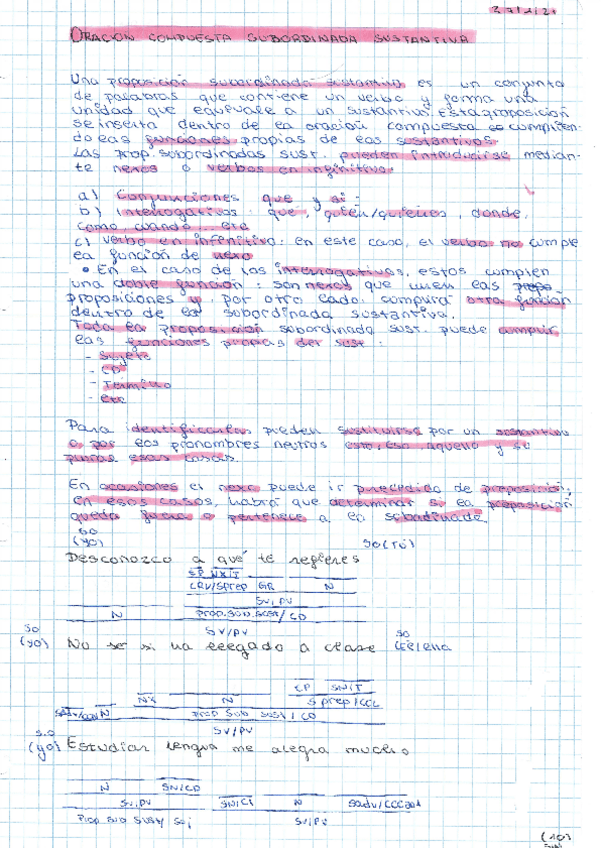 ORACION COMPUESTA SUBORDINADA SUSTANTIVA
Una proposición subordinada sustantiva es un conjunto
de palabras que contiene un verbo y forma una
unidad que equivale a un sustantivo. Esta proposición
se inserta dentro de la oración compuesta cumplien-
do las funciones propias de los sustantivos.
Las prop. subordinadas sust. pueden introducirse median-
te nexos o verbos en infinitivo.
a) Conjunciones que y si.
b) Interrogativos: qué, quién/quiénes, donde,
como, cuando... etc
c) Verbo en infinitivo: en este caso, el verbo no cumple
la función de nexo
• En el caso de los interrogativos, estos cumplen
una doble función: son nexos que unen las
proposiciones y, por otro lado, cumplirá otra función
dentro de la subordinada sustantiva.
Toda la proposición subordinada sust. puede cumplir
las funciones propias del sust:
- Sujeto
- CD
- Término
- etc
Para identificarlas pueden sustituirse por un sustantivo
o por los pronombres neutros esto, eso, aquello y se
esas cosas.
En ocasiones el nexo puede ir precedido de preposición,
en esos casos, habrá que determinar si la preposición
queda fuera o pertenece a la subordinada.
SO
(yo) SO(TÚ)
Desconozco a qué te refieres
SP NX/T
CRV/SPrep GR N
SV/PV
N prop. sub. sust/CD
SV/PV
SO SO
(yo) No se si ha llegado a clase Elena
CP SN/T
NX N Sprep/CCL
Sadv/ N prop Sub sust/CD
SV/PV
S.O
(yo) Estudiar lengua me alegra mucho
N SN/CD
SV/PV SN/CI N Sadv/CCCant
Prop sub sust/ Suj SV/PV